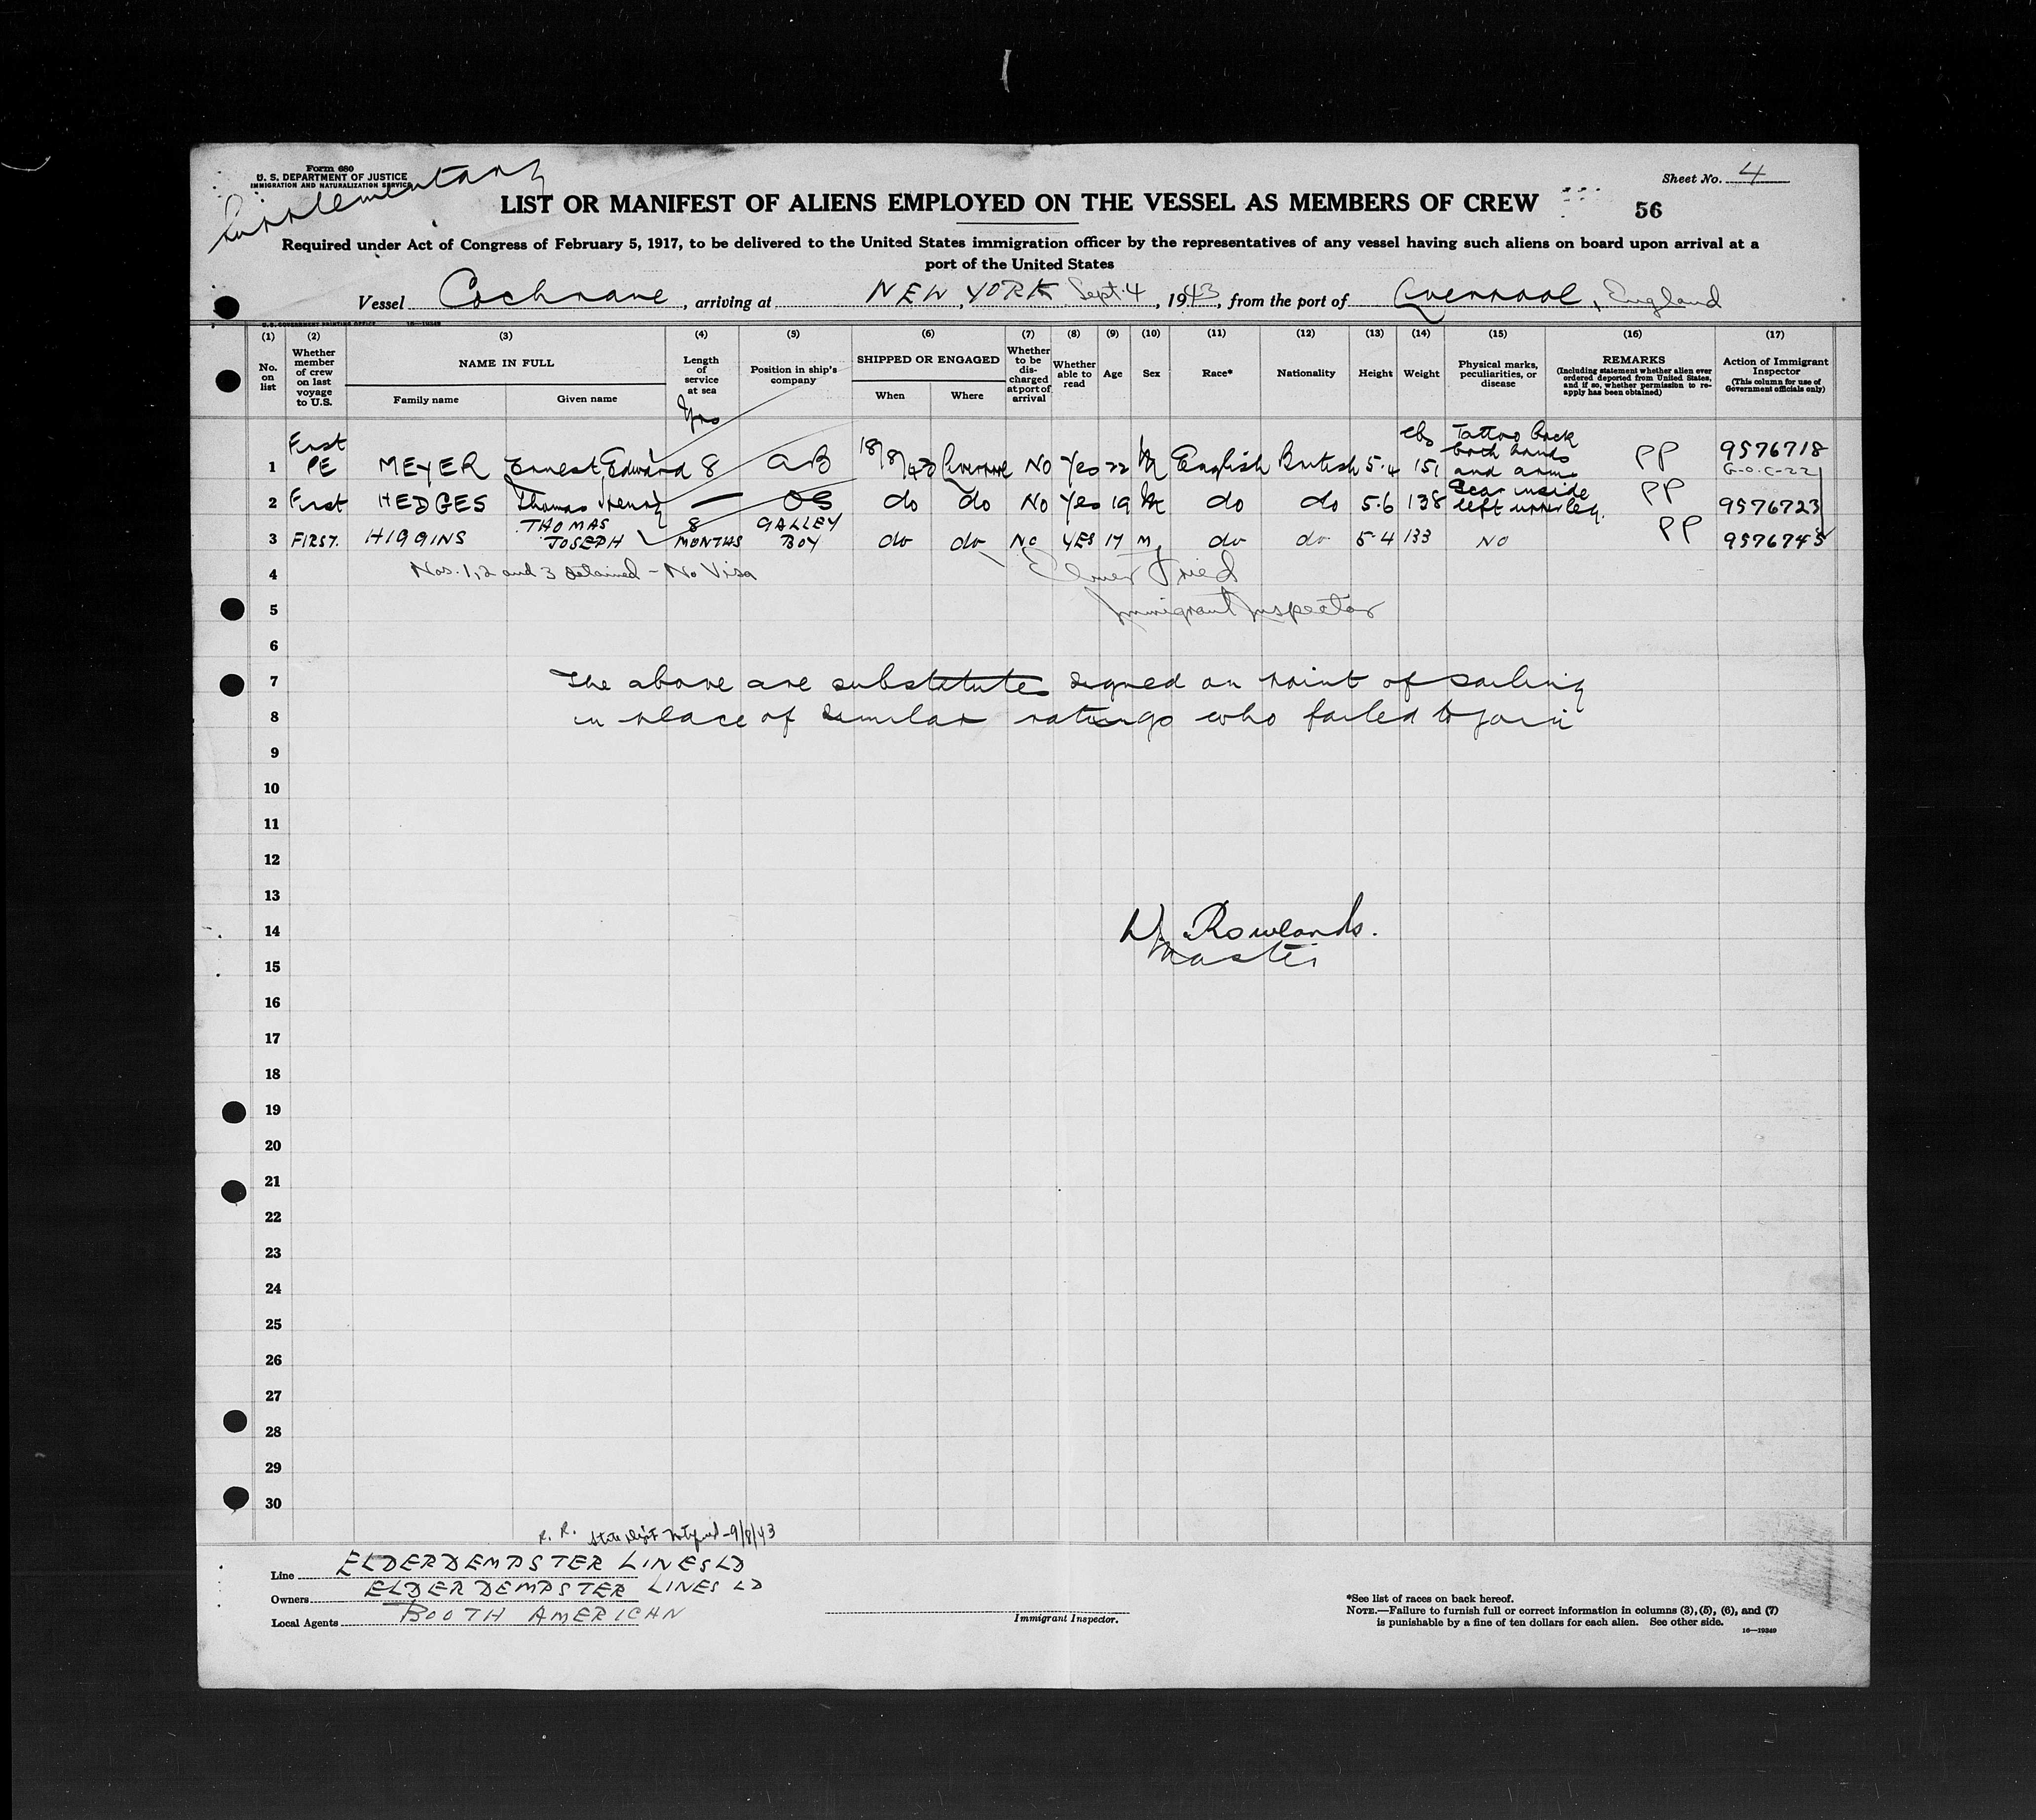 Form 680
U. S. DEPARTMENT OF JUSTICE
IMMIGRATION AND NATURALIZATION SERVICE
Supplementary
Sheet No. 4
LIST OR MANIFEST OF ALIENS EMPLOYED ON THE VESSEL AS MEMBERS OF CREW
56
Required under Act of Congress of February 5, 1917, to be delivered to the United States immigration officer by the representatives of any vessel having such aliens on board upon arrival at a
port of the United States
Vessel Cochrane, arriving at NEW YORK Sept 4, 1943, from the port of Liverpool, England
U. S. GOVERNMENT PRINTING OFFICE 16—19349
(1) (2) (3) (4) (5) (6) (7) (8) (9) (10) (11) (12) (13) (14) (15) (16) (17)
No. on list
Whether member of crew on last voyage to U.S.
NAME IN FULL
Family name
Given name
Length of service at sea
Yrs
Position in ship's company
SHIPPED OR ENGAGED
When
Where
Whether to be discharged at port of arrival
Whether able to read
Age
Sex
Race*
Nationality
Height
Weight
Physical marks, peculiarities, or disease
REMARKS
(Including statement whether alien ever ordered deported from United States, and if so, whether permission to reapply has been obtained)
Action of Immigrant Inspector
(This column for use of Government officials only)
1 First PE MEYER Ernest Edward 8 AB 18/8/43 Liverpool NO Yes 22 M English British 5.4 lbs 151 Tattoo back both hands and arms PP 9576718 G-O-C-22
2 First HEDGES Thomas Henry — OS do do NO Yes 19 M do do 5.6 138 Scar inside left upper leg. PP 9576723
3 FIRST. HIGGINS THOMAS JOSEPH 8 MONTHS GALLEY BOY do do NO YES 17 M. do do 5.4 133 NO PP 9576745
4 Nos. 1, 2 and 3 detained - No Visa Elmer Fried
5 Immigrant Inspector
6
7 The above are substitutes signed on point of sailing
8 in place of similar ratings who failed to join
9
10
11
12
13
14 Rowlands.
15 Master
16
17
18
19
20
21
22
23
24
25
26
27
28
29
30
9/8/43
Line ELDER DEMPSTER LINES LD
Owners ELDER DEMPSTER LINES LD
Local Agents BOOTH AMERICAN
Immigrant Inspector.
*See list of races on back hereof.
NOTE.—Failure to furnish full or correct information in columns (3), (5), (6), and (7)
is punishable by a fine of ten dollars for each alien. See other side.
16—19349